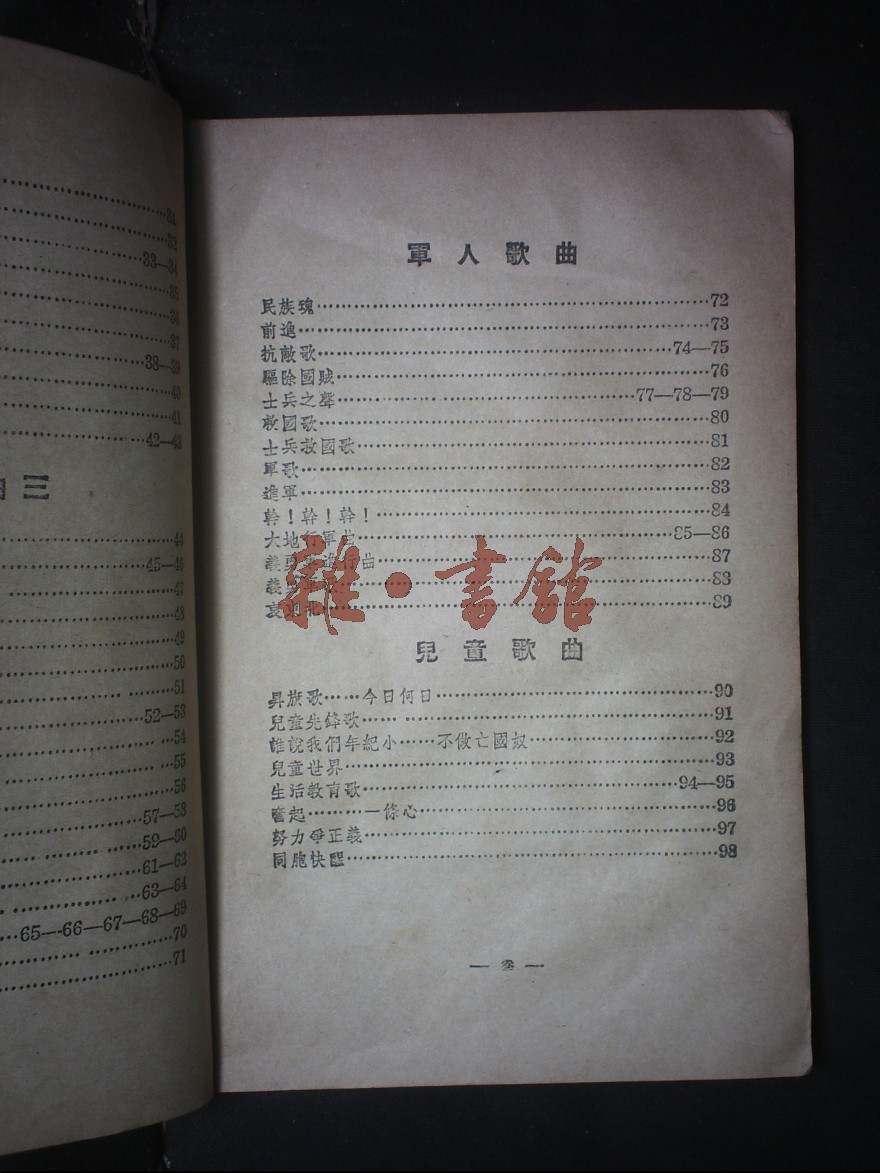 31
32
33—34
35
36
37
38—39
40
41
42—43
三
44
45—46
47
48
49
50
51
52—53
54
55
56
57—58
59—60
61—62
63—64
65—66—67—68—69
70
71
軍人歌曲
民族魂……72
前進……73
抗敵歌……74—75
驅除國賊……76
士兵之聲……77—78—79
救國歌……80
士兵救國歌……81
軍歌……82
進軍……83
幹!幹!幹!……84
大地行軍曲……85—86
義勇軍進行曲……87
義勇軍……88
哀東北……89
雜·書館
兒童歌曲
昇旗歌……今日何日……90
兒童先鋒歌……91
誰說我們年紀小……不做亡國奴……92
兒童世界……93
生活教育歌……94—95
奮起……一條心……96
努力爭正義……97
同胞快醒……98
— 叁 —